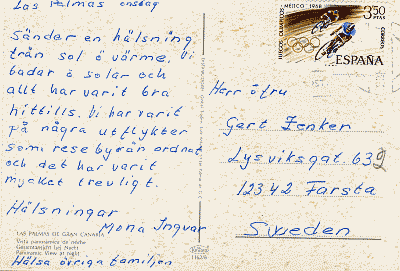 Las Palmas onsdag
Sänder en hälsning
från sol o värme. Vi
badar o solar och
allt har varit bra
hittills. Vi har varit
på några utflykter
som resebyrån ordnat
och det har varit
mycket trevligt.
Hälsningar
Mona Ingvar
LAS PALMAS DE GRAN CANARIA
Vista panorámica de noche
Gesamtansicht bei Nacht
Panoramic View at night
Hälsa övriga familjen
JUEGOS OLIMPICOS
MEJICO 1968
3,50
PTAS
CORREOS
ESPAÑA
Herr o fru
Gert Zenker
Lysviksgat. 63
12342 Farsta
Sweden